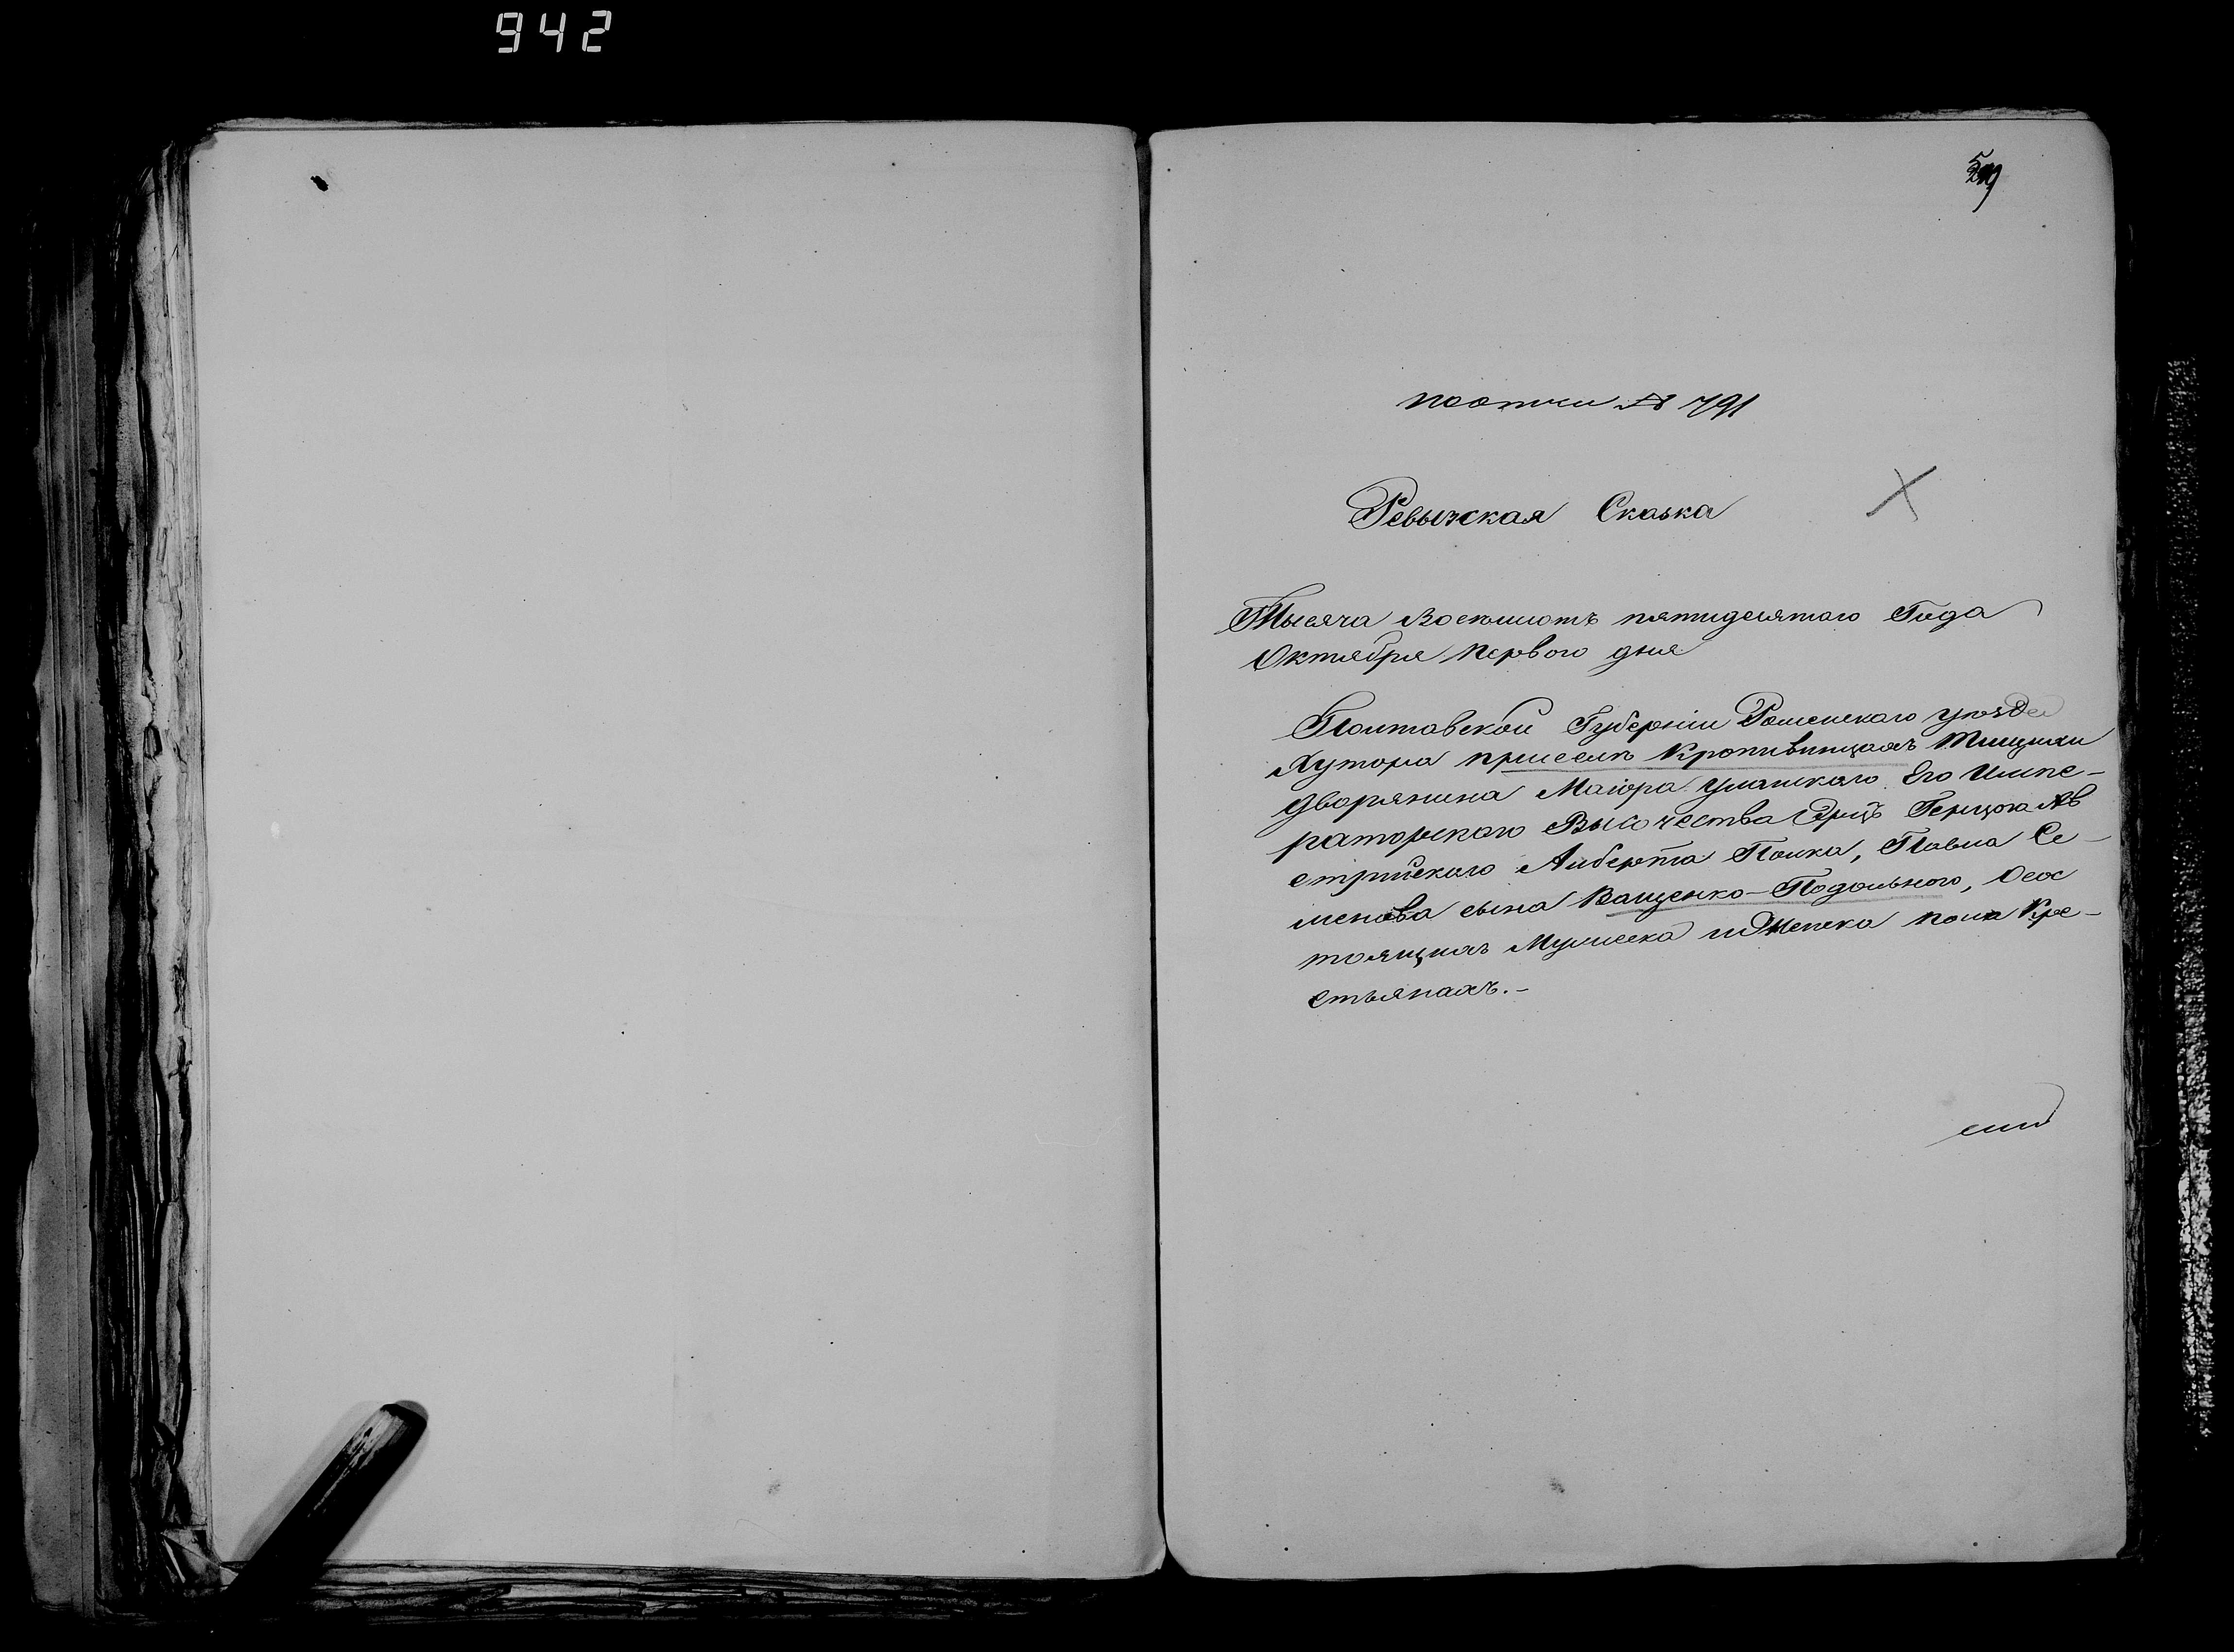 942
поописи № 791
Ревызская Сказка
Тысяча Восемьсотъ пятидесятого Года
Октября первого дня
Полтавской Губерніи Роменскаго уѣзда
Хутора при селѣ Кропивницахъ
дворянина Маіора уланскаго Его Импе-
раторскаго Высочества Эрцъ Герцога Ав
стрийскаго Альберта Полка, Павла Се-
менова сына Ващенко-Подольного, осос
тоящихъ Мужеска и Женска пола Кре-
стьянахъ.-